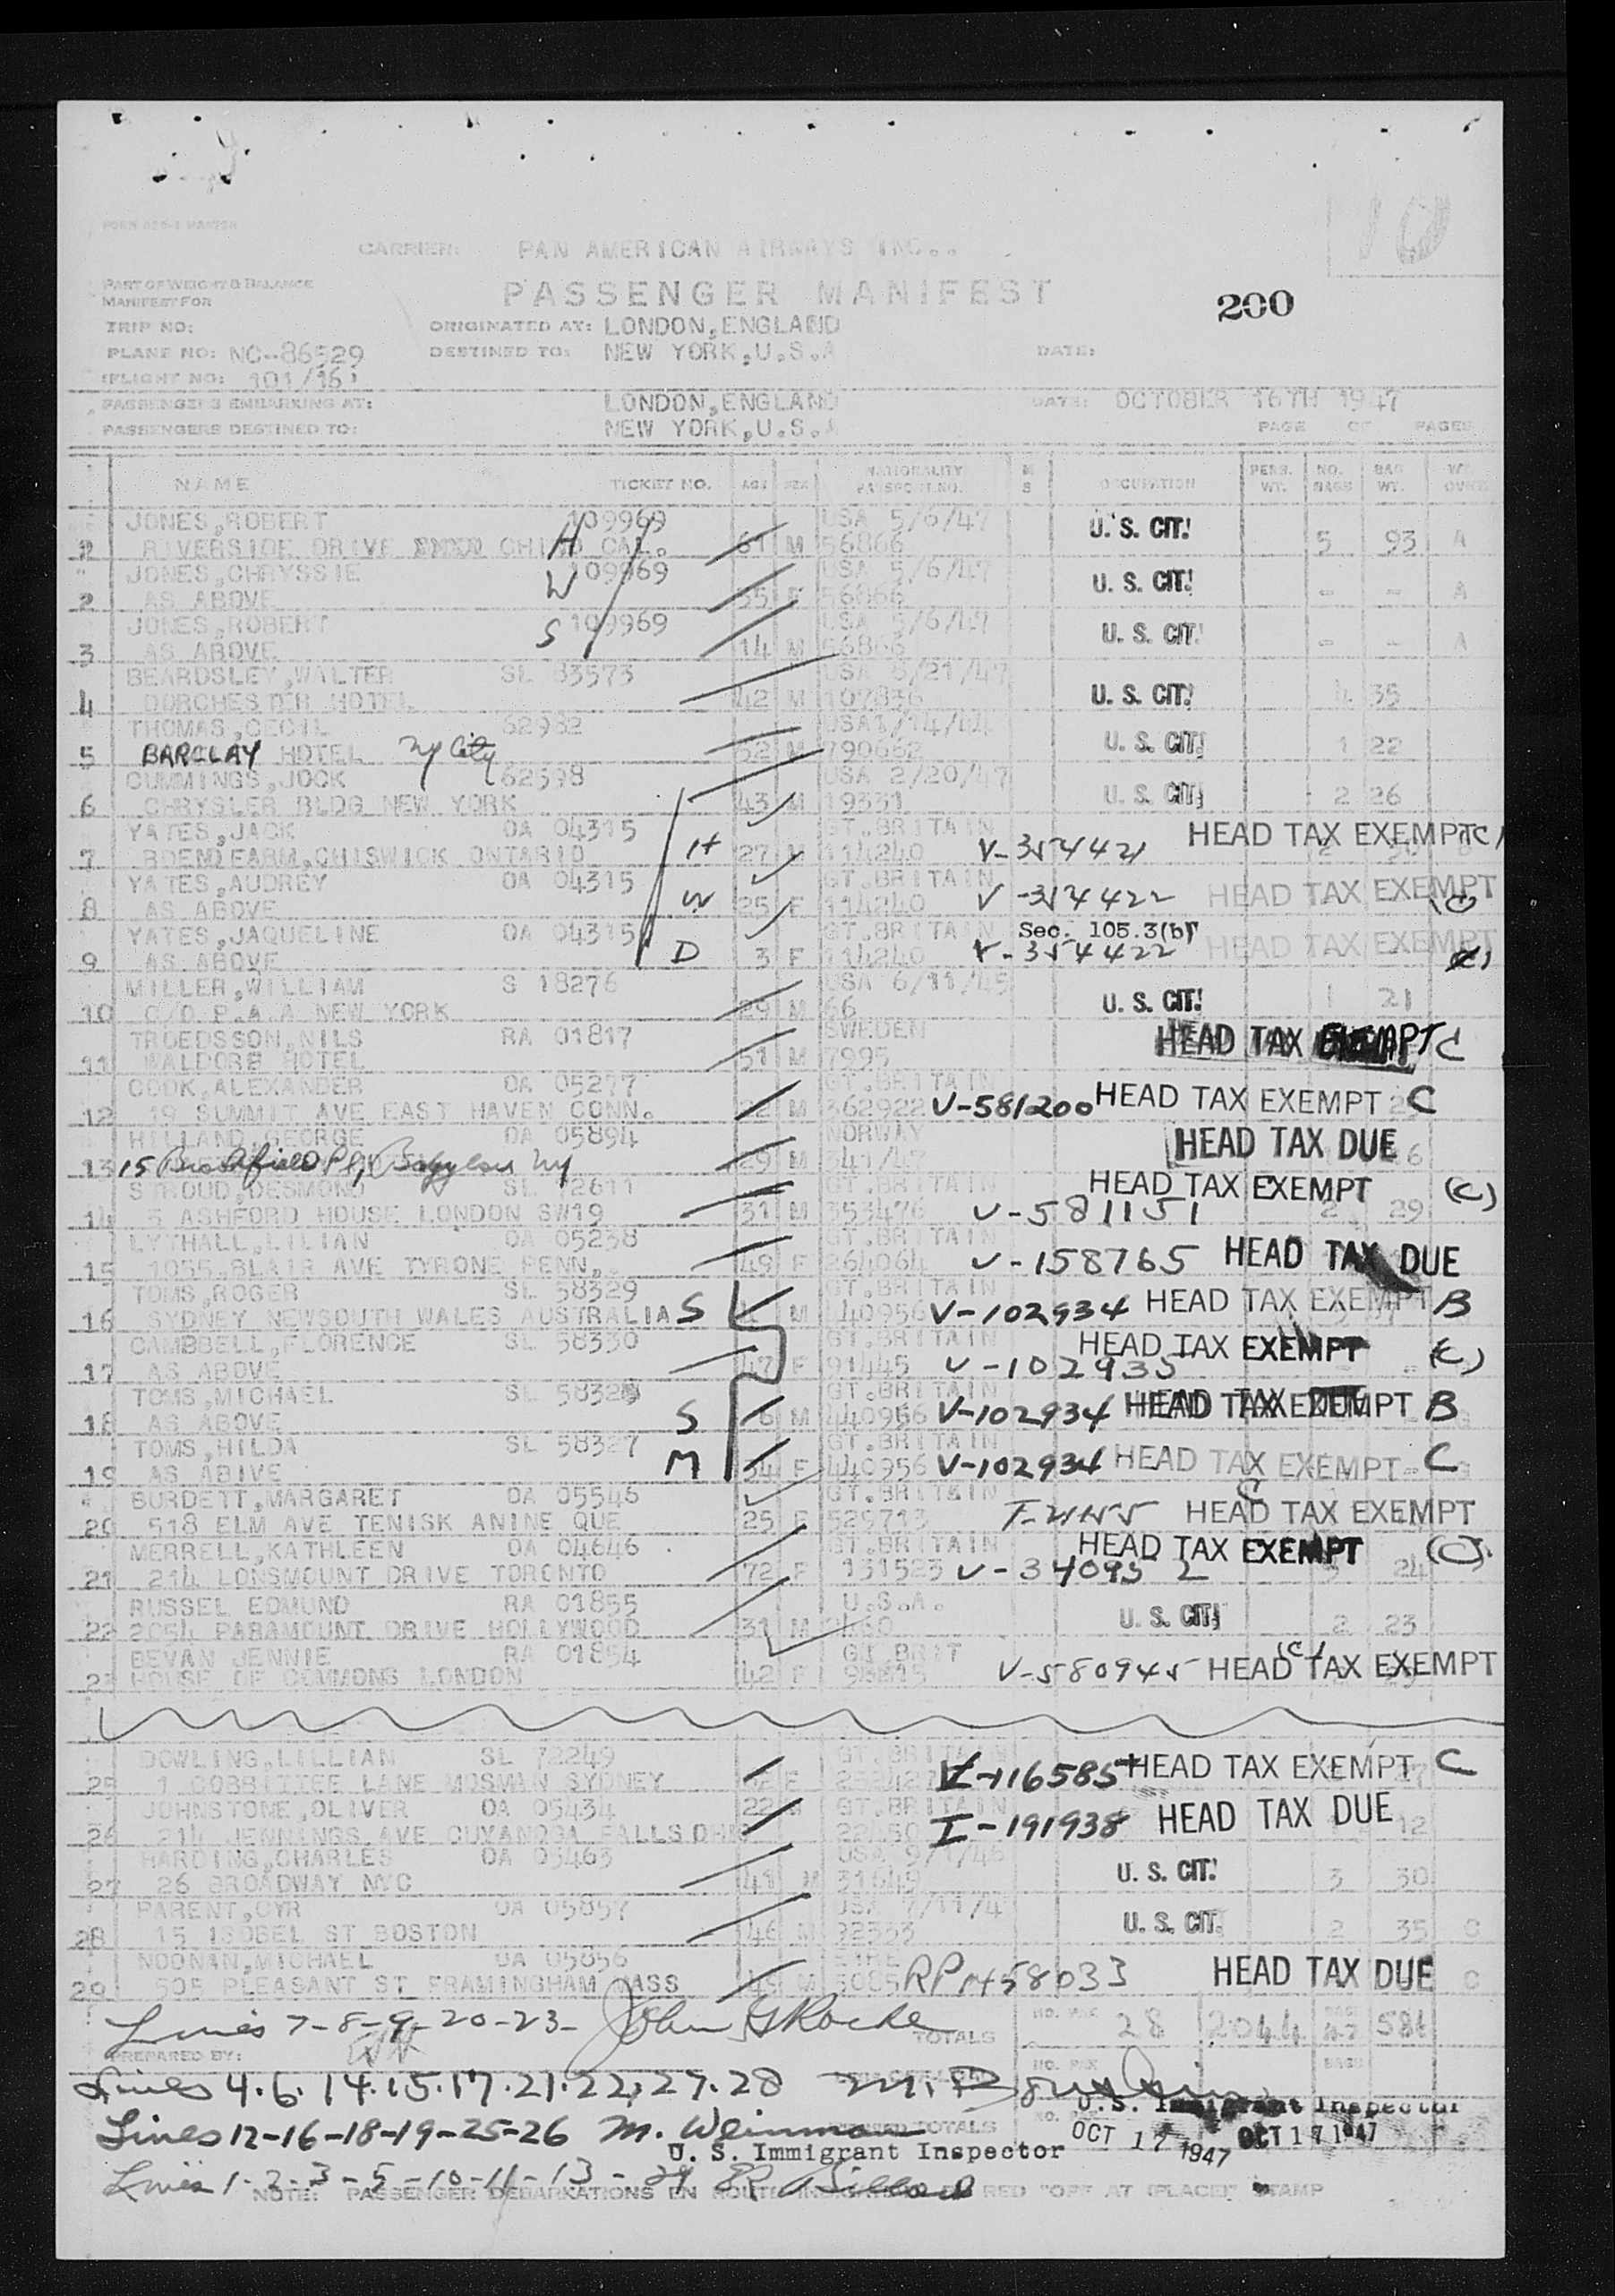 10
FORM 026-1 MASTER
CARRIER: PAN AMERICAN AIRWAYS INC..
PART OF WEIGHT & BALANCE
MANIFEST FOR
PASSENGER MANIFEST
200
TRIP NO:
ORIGINATED AT: LONDON, ENGLAND
PLANE NO: NC-86529
DESTINED TO: NEW YORK, U.S.A
DATE:
FLIGHT NO: 101/16
PASSENGERS EMBARKING AT: LONDON, ENGLAND
DATE: OCTOBER 16TH 1947
PASSENGERS DESTINED TO: NEW YORK, U.S.A
PAGE OF PAGES
NAME TICKET NO. AGE SEX NATIONALITY PASSPORT NO. M S OCCUPATION PERS. WT. NO. BAGS BAG WT.
JONES, ROBERT 109969 USA 5/6/47
RIVERSIDE DRIVE CHINO CAL. H 61 M 56866 U. S. CIT. 5 93 A
JONES, CHRYSSIE 109969 USA 5/6/47
2 AS ABOVE W 55 F 56866 U. S. CIT. - - A
JONES, ROBERT 109969 USA 5/6/47
3 AS ABOVE S 14 M 56866 U. S. CIT. - - A
BEARDSLEY, WALTER SL 83573 USA /21/47
4 DORCHESTER HOTEL 42 M 107836 U. S. CIT. 4 35
THOMAS, CECIL 62982
5 BARCLAY HOTEL NY City 52 M 790662 U. S. CIT. 1 22
CUMMINGS, JOCK 62598 USA 2/20/47
6 CHRYSLER BLDG NEW YORK 43 M 19331 U. S. CIT. 2 26
YATES, JACK OA 04315 GT.BRITAIN
7 CHISWICK ONTARIO H 27 M 114240 V-354421 HEAD TAX EXEMPT (C)
YATES, AUDREY OA 04315 GT.BRITAIN
8 AS ABOVE W 25 F 114240 V-354422 HEAD TAX EXEMPT (C)
YATES, JAQUELINE OA 04315 GT.BRITAIN Sec. 105.3(b)
9 AS ABOVE D 3 F 114240 V-354422 HEAD TAX EXEMPT (C)
MILLER, WILLIAM S 18276 USA 6/11/45
10 C/O P.A.A NEW YORK 29 M 66 U. S. CIT. 1 21
TROEDSSON, NILS RA 01817 SWEDEN
11 WALDORF HOTEL 51 M 7995 HEAD TAX EXEMPT C
COOK, ALEXANDER OA 05277 GT.BRITAIN
12 19 SUMMIT AVE EAST HAVEN CONN. 22 M 362922 V-581200 HEAD TAX EXEMPT C
HILLAND, GEORGE OA 05894 NORWAY
13 15 Pl, Babylon NY 29 M 341/47 HEAD TAX DUE
STROUD, DESMOND SL 72611 GT.BRITAIN
14 5 ASHFORD HOUSE LONDON SW19 31 M 353476 V-581151 HEAD TAX EXEMPT (C) 2 29
LYTHALL, LILIAN OA 05238 GT.BRITAIN
15 1055 BLAIR AVE TYRONE PENN. 49 F 264064 V-158765 HEAD TAX DUE
TOMS, ROGER SL 58329 GT.BRITAIN
16 SYDNEY NEWSOUTH WALES AUSTRALIA S M 440956 V-102934 HEAD TAX EXEMPT B
CAMBBELL, FLORENCE SL 58330 GT.BRITAIN
17 AS ABOVE 47 F 91445 V-102935 HEAD TAX EXEMPT (C)
TOMS, MICHAEL SL 58328 GT.BRITAIN
18 AS ABOVE S 6 M 440956 V-102934 HEAD TAX EXEMPT B
TOMS, HILDA SL 58327 GT.BRITAIN
19 AS ABIVE M 34 F 440956 V-102934 HEAD TAX EXEMPT C
BURDETT, MARGARET OA 05546 GT.BRITAIN
20 518 ELM AVE TENISK ANINE QUE 25 F 529713 HEAD TAX EXEMPT
MERRELL, KATHLEEN OA 04646 GT.BRITAIN
21 214 LONSMOUNT DRIVE TORONTO 72 F 131523 V-340952 HEAD TAX EXEMPT (C) 24
RUSSEL EDMUND RA 01855 U.S.A.
22 2054 PARAMOUNT DRIVE HOLLYWOOD 31 M U. S. CIT. 2 23
BEVAN JENNIE RA 01854 GT.BRIT
23 HOUSE OF COMMONS LONDON 42 F V-580945 HEAD TAX EXEMPT (C)
DOWLING, LILLIAN SL 72249 GT.BRITAIN
25 1 LANE MOSMAN SYDNEY F I-116585 HEAD TAX EXEMPT C
JOHNSTONE, OLIVER OA 05434 22 GT.BRITAIN
26 214 JENNINGS AVE CUYAHOGA FALLS OHIO I-191938 HEAD TAX DUE 12
HARDING, CHARLES OA 05463
27 26 BROADWAY NYC 41 M 31649 U. S. CIT. 3 30
PARENT, CYR OA 05857 USA 7/11/4
28 15 ISOBEL ST BOSTON 46 M U. S. CIT. 2 35 C
NOONAN, MICHAEL OA 05856 EIRE
29 505 PLEASANT ST FRAMINGHAM MASS 49 M 5085 RP 1458033 HEAD TAX DUE C
Lines 7-8-9-20-23- John G Roche
TOTALS NO. PAX 28 2044 584
PREPARED BY:
Lines 4.6.14.15.17.21.22.27.28
NO. PAX BAGS
U.S. Immigrant Inspector
Lines 12-16-18-19-25-26 M. Weinman
TOTALS
U. S. Immigrant Inspector
OCT 17 1947 OCT 17 1947
Lines 1-2-3-5-10-11-13-29
NOTE: PASSENGER DEBARKATIONS EN ROUTE RED "OFF AT (PLACE)" STAMP